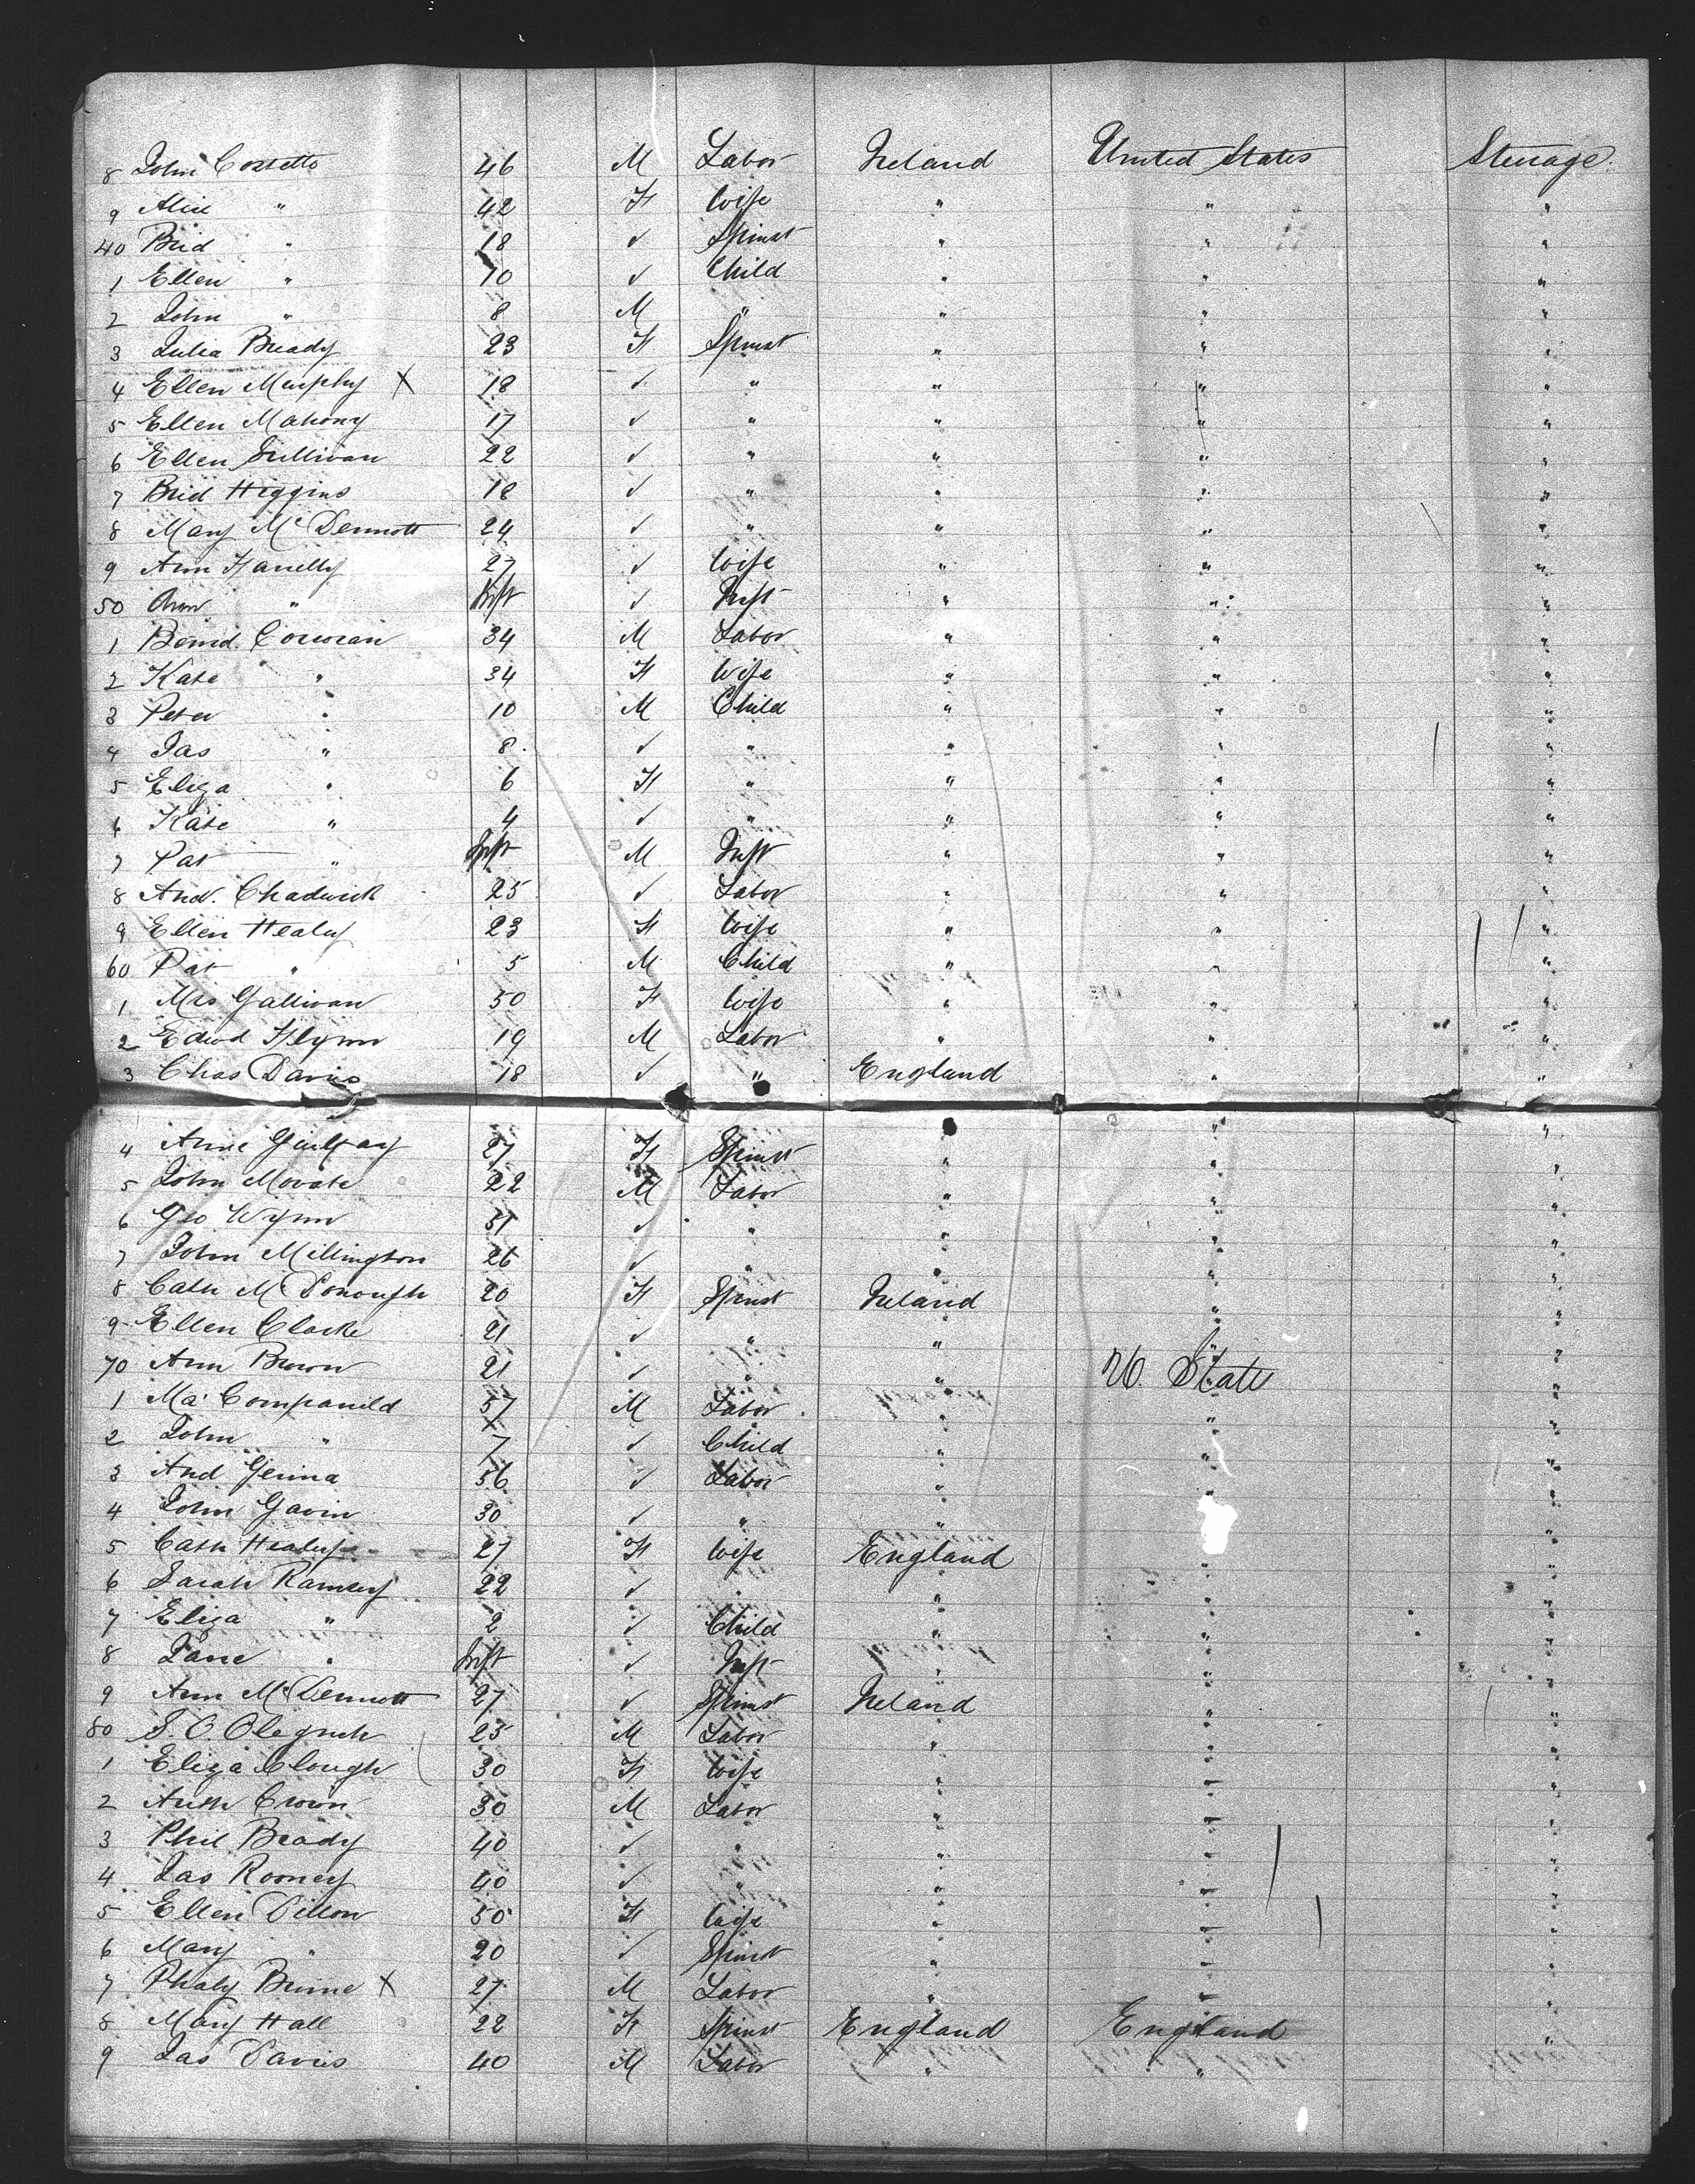 8 John Costello 46 M Labor Ireland United States Steerage.
9 Alice " 42 F Wife " " "
40 Brid " 18 ✓ Spinst " " "
1 Ellen " 10 ✓ Child " " "
2 John " 8 M " " " "
3 Julia Brady 23 F Spinst " " "
4 Ellen Murphy X 18 ✓ " " " "
5 Ellen Mahony 17 ✓ " " " "
6 Ellen Sullivan 22 ✓ " " " "
7 Brid Higgins 18 ✓ " " " "
8 Mary McDermott 24 ✓ " " " "
9 Ann Hanelly 27 ✓ Wife " " "
50 Ann " Inft ✓ Inft " " "
1 Bernd. Corcoran 34 M Labor " " "
2 Kate " 34 F Wife " " "
3 Peter " 10 M Child " " "
4 Jas " 8 ✓ " " " "
5 Eliza " 6 F " " " "
6 Kate " 4 ✓ " " " "
7 Pat " Inft M Inft " " "
8 And. Chadwick 25 ✓ Labor " " "
9 Ellen Healy 23 F Wife " " "
60 Pat " 5 M Child " " "
1 Mrs Gallivan 50 F Wife " " "
2 Edwd Flynn 19 M Labor " " "
3 Chas Davis 18 ✓ " England " "
4 Anne 27 F Spinst " " "
5 John Movate 22 M Labor " " "
6 Geo Wynn 51 ✓ " " " "
7 John Millington 26 ✓ " " " "
8 Cath McDonough 20 F Spinst Ireland " "
9 Ellen Clarke 21 ✓ " " " "
70 Ann Brown 21 ✓ " " U. State "
1 Ma Companild 57 M Labor " " "
2 John " 7 ✓ Child " " "
3 And Gerina 56 ✓ Labor " " "
4 John Gavin 30 ✓ " " "
5 Cath Healy 27 F Wife England " "
6 Sarah Ramsey 22 ✓ " " " "
7 Eliza " 2 ✓ Child " " "
8 Jane " Inft ✓ Inft " " "
9 Ann McDermott 27 ✓ Spinst Ireland " "
80 S. O. 25 M Labor " " "
1 Eliza Clough 30 F Wife " " "
2 Anth Crown 30 M Labor " " "
3 Phil Brady 40 ✓ " " " "
4 Jas Rooney 40 ✓ " " " "
5 Ellen Dillon 50 F Wife " " "
6 Mary " 20 ✓ Spinst " " "
7 Phaly Birne X 27 M Labor " " "
8 Mary Hall 22 F Spinst England England "
9 Jas Davis 40 M Labor " "